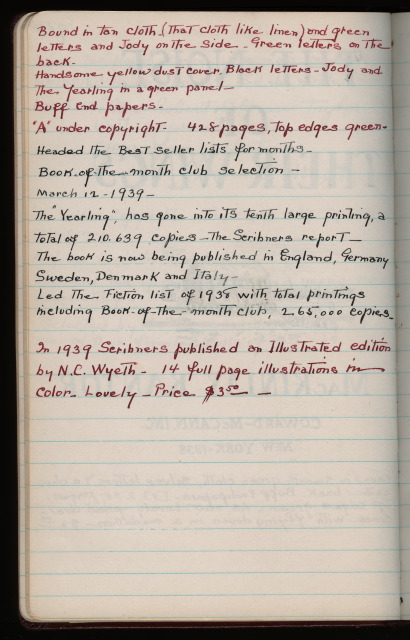 Bound in tan cloth (that cloth like linen) and green
letters and Jody on the side - Green letters on the
back -
Handsome yellow dust cover. Black letters - Jody and
The Yearling in a green panel -
Buff end papers -
"A" under copyright - 428 pages, top edges green -
Headed the Best seller lists for months -
Book-of-the-month club selection -
March 12 - 1939 -
The "Yearling", has gone into its tenth large printing, a
total of 210.639 copies - The Scribners report -
The book is now being published in England, Germany
Sweden, Denmark and Italy -
Led the Fiction list of 1938 with total printings
including Book-of-the-month club, 265,000 copies -
In 1939 Scribners published an Illustrated edition
by N.C. Wyeth - 14 full page illustrations in
color - Lovely - Price $3.50 -
COWARD-McCANN INC
NEW YORK - 1938